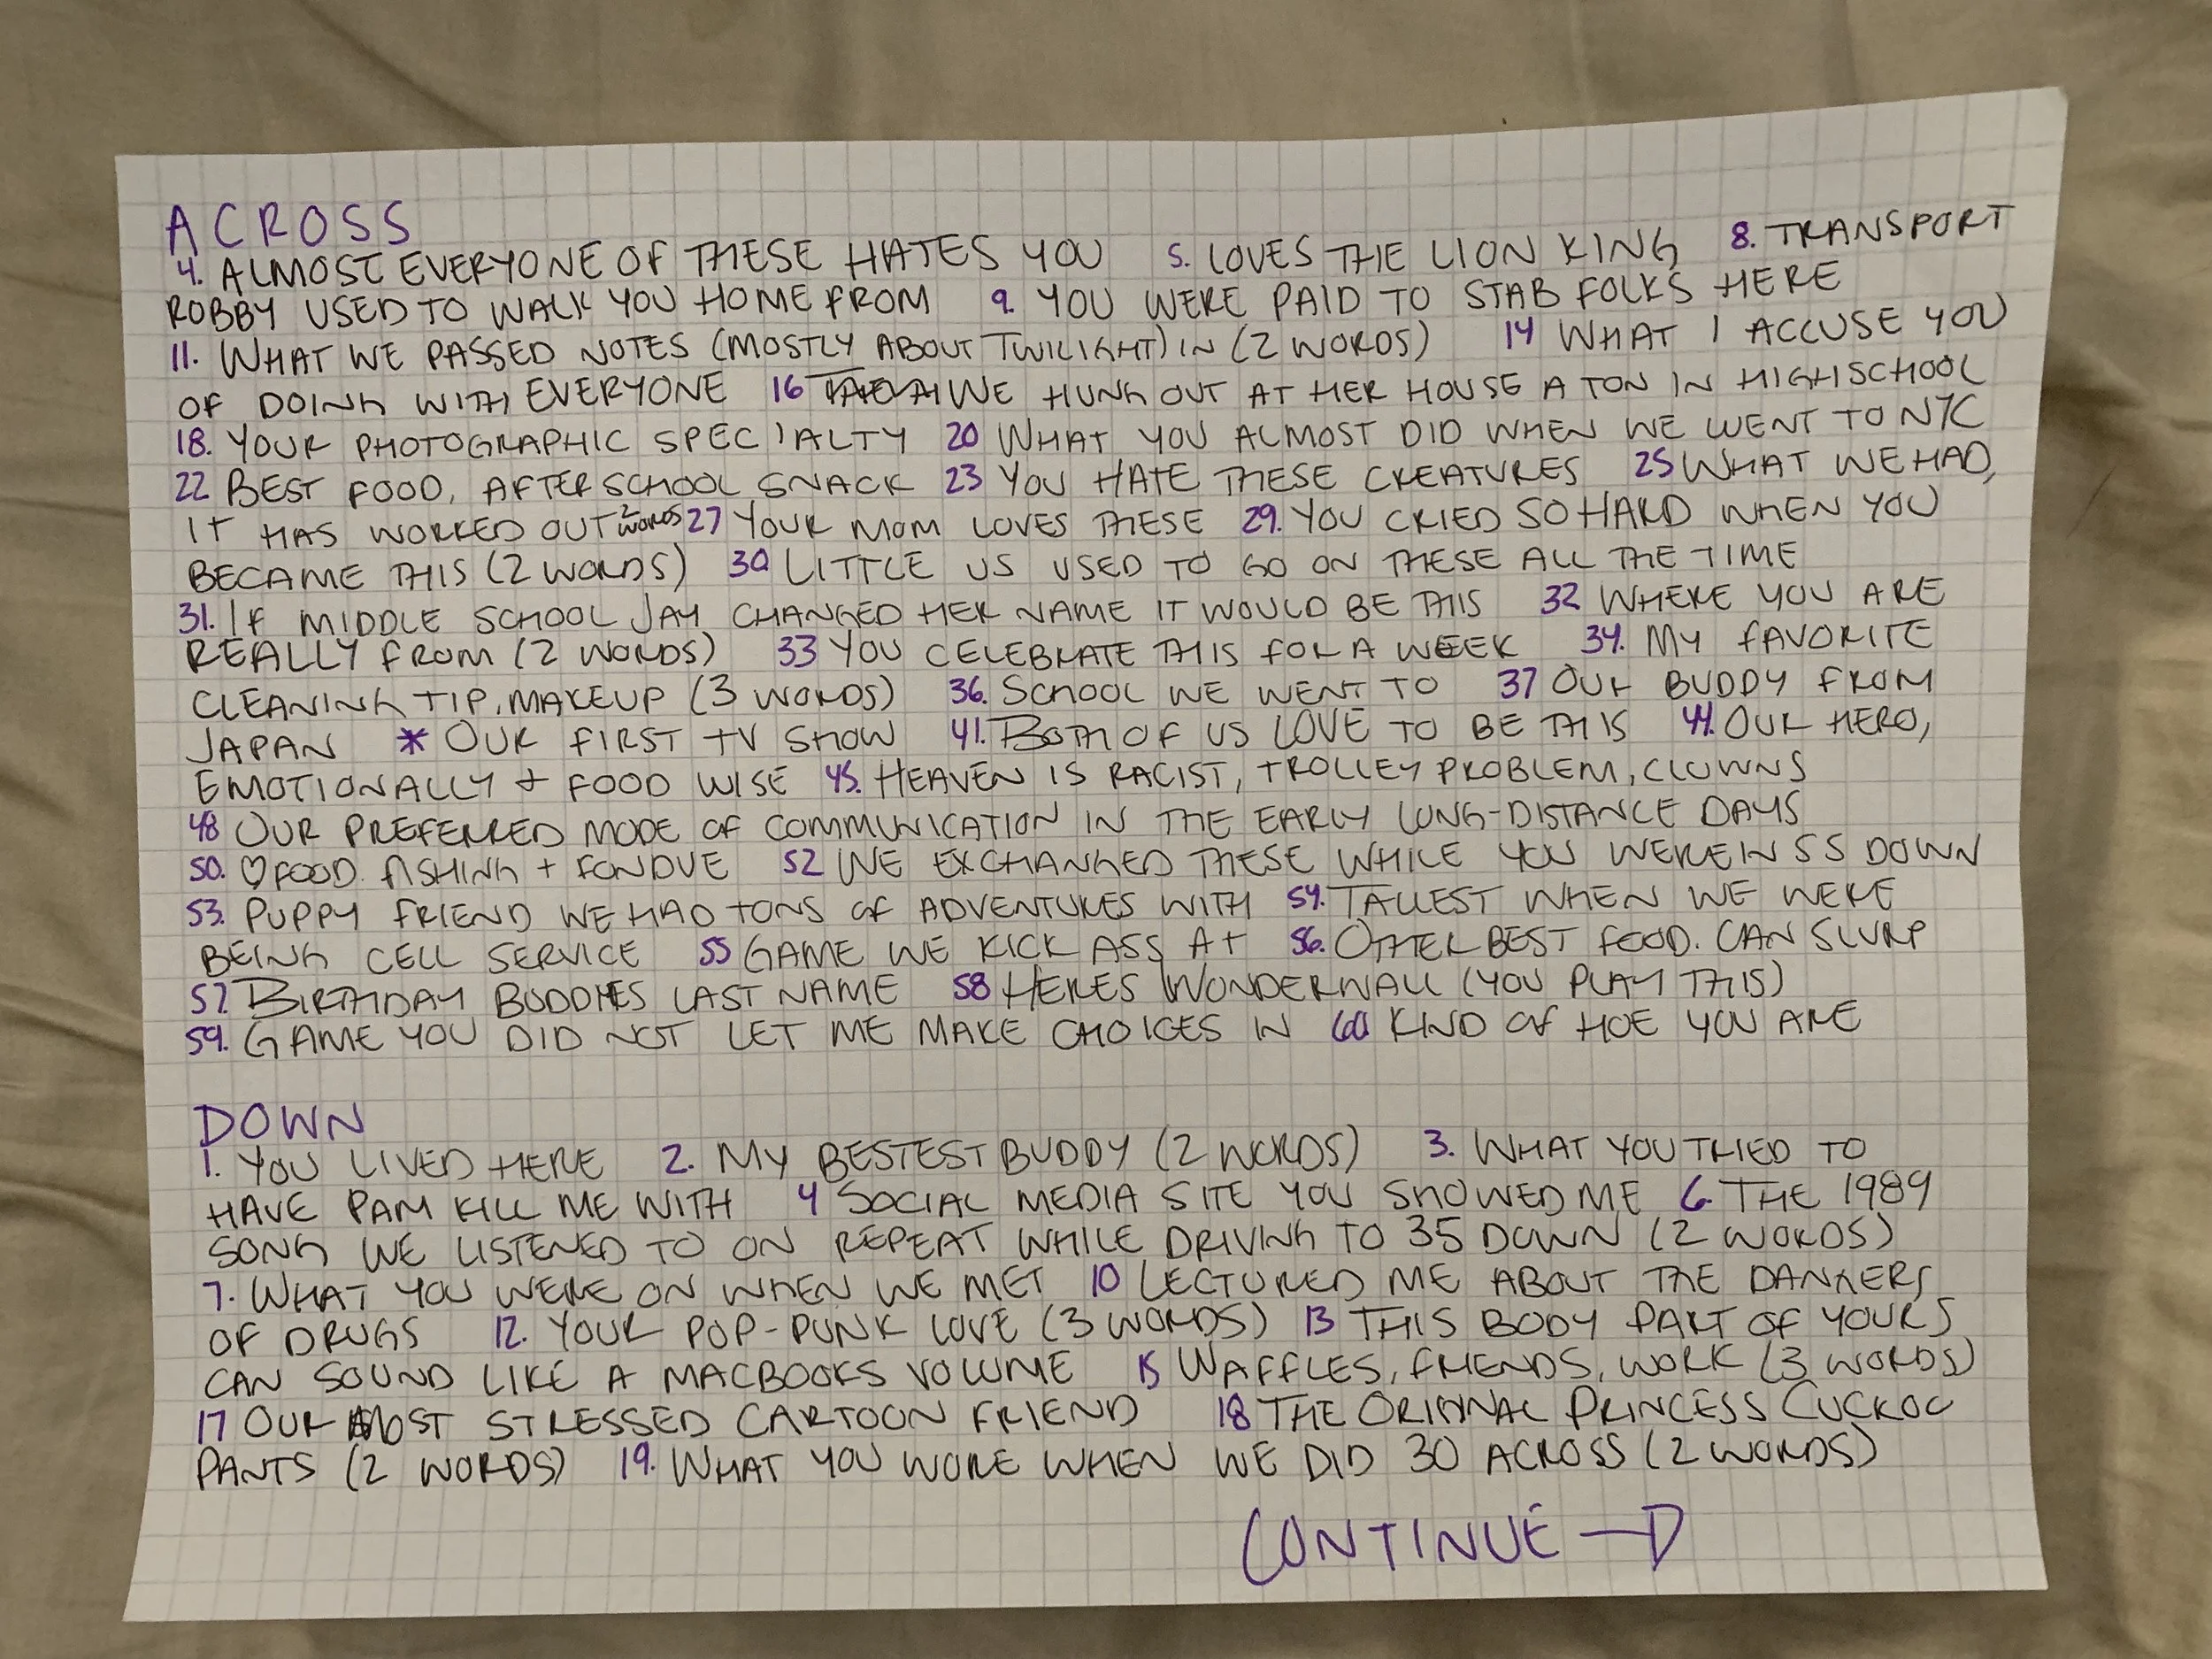 ACROSS
4. ALMOST EVERYONE OF THESE HATES YOU 5. LOVES THE LION KING 8. TRANSPORT
ROBBY USED TO WALK YOU HOME FROM 9. YOU WERE PAID TO STAB FOLKS HERE
11. WHAT WE PASSED NOTES (MOSTLY ABOUT TWILIGHT) IN (2 WORDS) 14 WHAT I ACCUSE YOU
OF DOING WITH EVERYONE 16 WE HUNG OUT AT HER HOUSE A TON IN HIGHSCHOOL
18. YOUR PHOTOGRAPHIC SPECIALTY 20 WHAT YOU ALMOST DID WHEN WE WENT TO NYC
22 BEST FOOD, AFTERSCHOOL SNACK 23 YOU HATE THESE CREATURES 25 WHAT WE HAD,
IT HAS WORKED OUT 2 WORDS 27 YOUR MOM LOVES THESE 29. YOU CRIED SO HARD WHEN YOU
BECAME THIS (2 WORDS) 30 LITTLE US USED TO GO ON THESE ALL THE TIME
31. IF MIDDLE SCHOOL JAY CHANGED HER NAME IT WOULD BE THIS 32 WHERE YOU ARE
REALLY FROM (2 WORDS) 33 YOU CELEBRATE THIS FOR A WEEK 34. MY FAVORITE
CLEANING TIP, MAKEUP (3 WORDS) 36. SCHOOL WE WENT TO 37 OUR BUDDY FROM
JAPAN * OUR FIRST TV SHOW 41. BOTH OF US LOVE TO BE THIS 44. OUR HERO,
EMOTIONALLY + FOOD WISE 45. HEAVEN IS RACIST, TROLLEY PROBLEM, CLOWNS
48 OUR PREFERRED MODE OF COMMUNICATION IN THE EARLY LONG-DISTANCE DAYS
50. ♡ FOOD. FISHING + FONDUE 52 WE EXCHANGED THESE WHILE YOU WERE IN 55 DOWN
53. PUPPY FRIEND WE HAD TONS OF ADVENTURES WITH 54. TALLEST WHEN WE WERE
BEING CELL SERVICE 55 GAME WE KICK ASS AT 56. OTHER BEST FOOD. CAN SLURP
57. BIRTHDAY BUDDIES LAST NAME 58 HERES WONDERWALL (YOU PLAY THIS)
59. GAME YOU DID NOT LET ME MAKE CHOICES IN 60 KIND OF HOE YOU ARE
DOWN
1. YOU LIVED HERE 2. MY BESTEST BUDDY (2 WORDS) 3. WHAT YOU TRIED TO
HAVE PAM KILL ME WITH 4 SOCIAL MEDIA SITE YOU SHOWED ME 6. THE 1989
SONG WE LISTENED TO ON REPEAT WHILE DRIVING TO 35 DOWN (2 WORDS)
7. WHAT YOU WERE ON WHEN WE MET 10 LECTURED ME ABOUT THE DANGERS
OF DRUGS 12. YOUR POP-PUNK LOVE (3 WORDS) 13 THIS BODY PART OF YOURS
CAN SOUND LIKE A MACBOOKS VOLUME 15 WAFFLES, FRIENDS, WORK (3 WORDS)
17 OUR MOST STRESSED CARTOON FRIEND 18 THE ORIGINAL PRINCESS CUCKOO
PANTS (2 WORDS) 19. WHAT YOU WORE WHEN WE DID 30 ACROSS (2 WORDS)
CONTINUE →